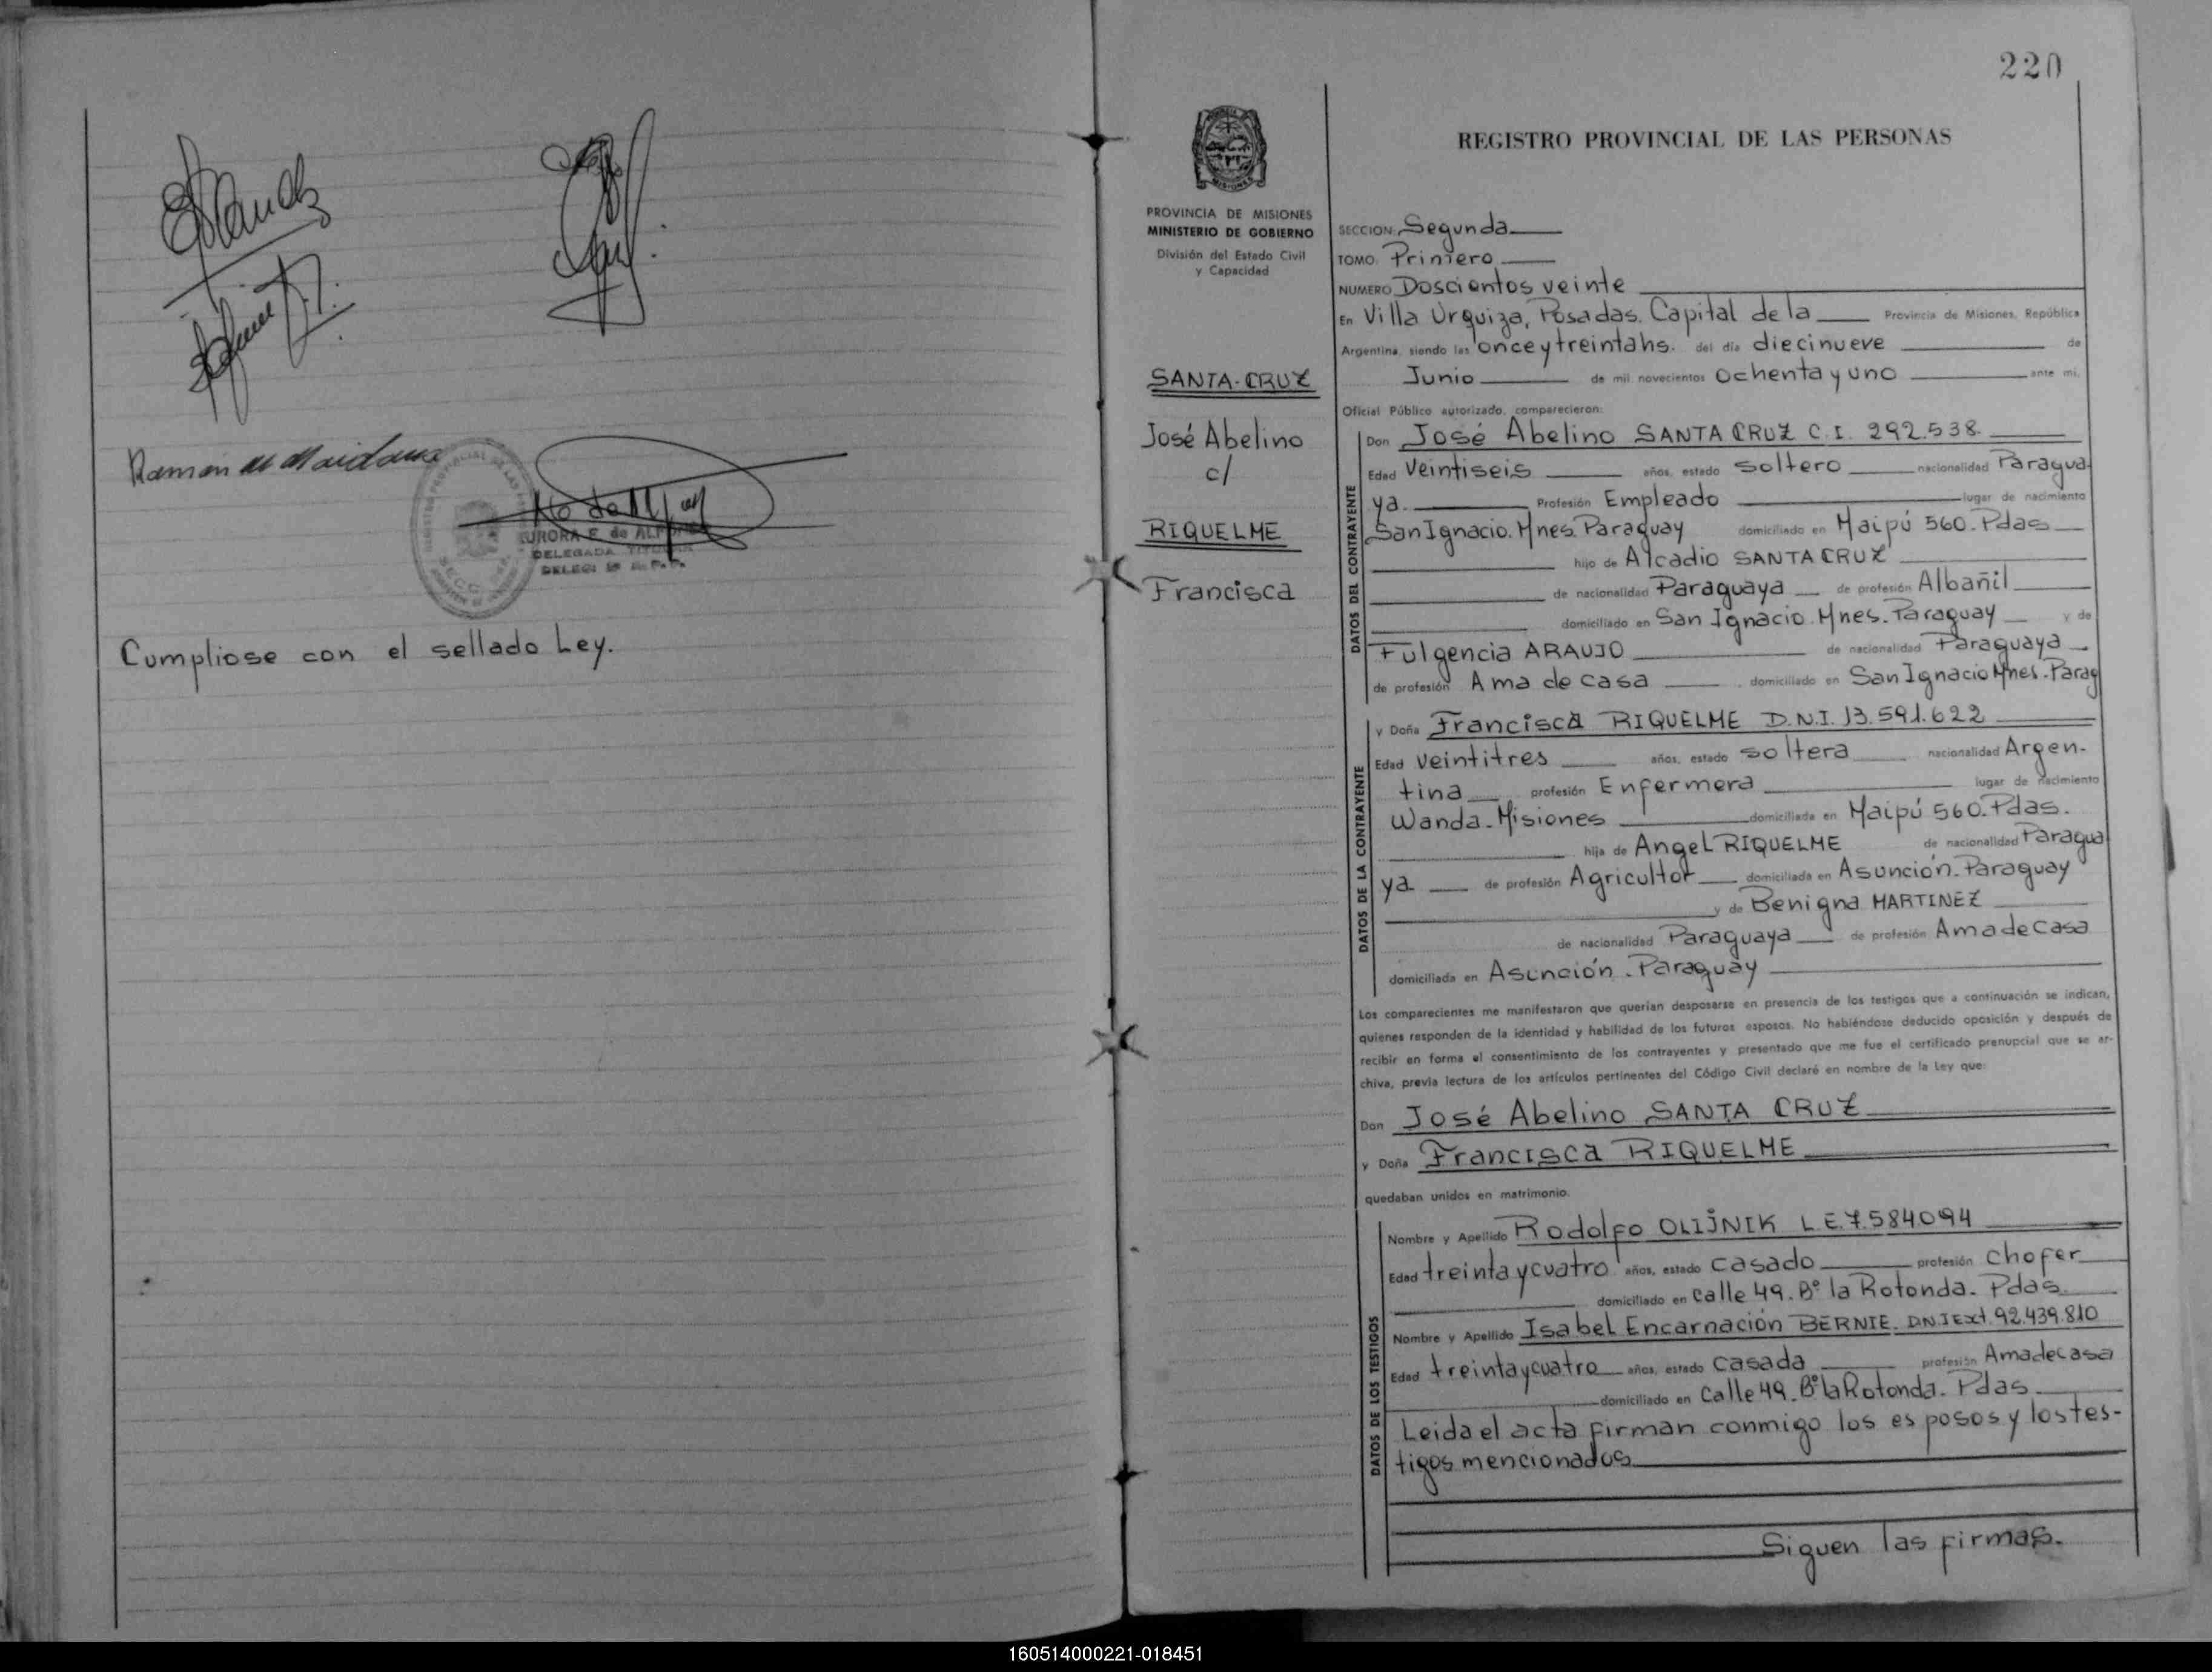 Cumpliose con el sellado Ley.
DELEGADA TITULAR
220
REGISTRO PROVINCIAL DE LAS PERSONAS
MISIONES
PROVINCIA DE MISIONES
MINISTERIO DE GOBIERNO
División del Estado Civil
y Capacidad
SANTA-CRUZ
José Abelino
c/
RIQUELME
Francisca
SECCION: Segunda
TOMO: Primero
NUMERO Doscientos veinte
En Villa Urquiza, Posadas. Capital de la Provincia de Misiones, República
Argentina, siendo las once y treinta hs. del día diecinueve de
Junio de mil novecientos Ochenta y uno ante mí,
Oficial Público autorizado, comparecieron:
DATOS DEL CONTRAYENTE
Don José Abelino SANTA CRUZ C.I. 292.538.
Edad Veintiseis años, estado soltero nacionalidad Paragua
ya. Profesión Empleado lugar de nacimiento
San Ignacio. Mnes. Paraguay domiciliado en Maipú 560. Pdas
hijo de Alcadio SANTA CRUZ
de nacionalidad Paraguaya de profesión Albañil
domiciliado en San Ignacio. Mnes. Paraguay y de
Fulgencia ARAUJO de nacionalidad Paraguaya
de profesión Ama de casa domiciliado en San Ignacio Mnes. Parag
DATOS DE LA CONTRAYENTE
y Doña Francisca RIQUELME D.N.I. 13.591.622
Edad Veintitres años, estado soltera nacionalidad Argen-
tina profesión Enfermera lugar de nacimiento
Wanda. Misiones domiciliada en Maipú 560. Pdas.
hija de Angel RIQUELME de nacionalidad Paragua
ya de profesión Agricultor domiciliada en Asunción. Paraguay
y de Benigna MARTINEZ
de nacionalidad Paraguaya de profesión Ama de Casa
domiciliada en Asunción. Paraguay
Los comparecientes me manifestaron que querían desposarse en presencia de los testigos que a continuación se indican,
quienes responden de la identidad y habilidad de los futuros esposos. No habiéndose deducido oposición y después de
recibir en forma el consentimiento de los contrayentes y presentado que me fue el certificado prenupcial que se ar-
chiva, previa lectura de los artículos pertinentes del Código Civil declaré en nombre de la Ley que:
Don José Abelino SANTA CRUZ
y Doña Francisca RIQUELME
quedaban unidos en matrimonio.
DATOS DE LOS TESTIGOS
Nombre y Apellido Rodolfo OLIJNIK L.E. 7.584094
Edad treinta y cuatro años, estado casado profesión chofer
domiciliado en calle 49. B° la Rotonda. Pdas.
Nombre y Apellido Isabel Encarnación BERNIE. D.N.I Ext. 92.439.810
Edad treinta y cuatro años, estado casada profesión Ama de casa
domiciliado en Calle 49. B° la Rotonda. Pdas
Leida el acta firman conmigo los esposos y los tes-
tigos mencionados
Siguen las firmas.
160514000221-018451